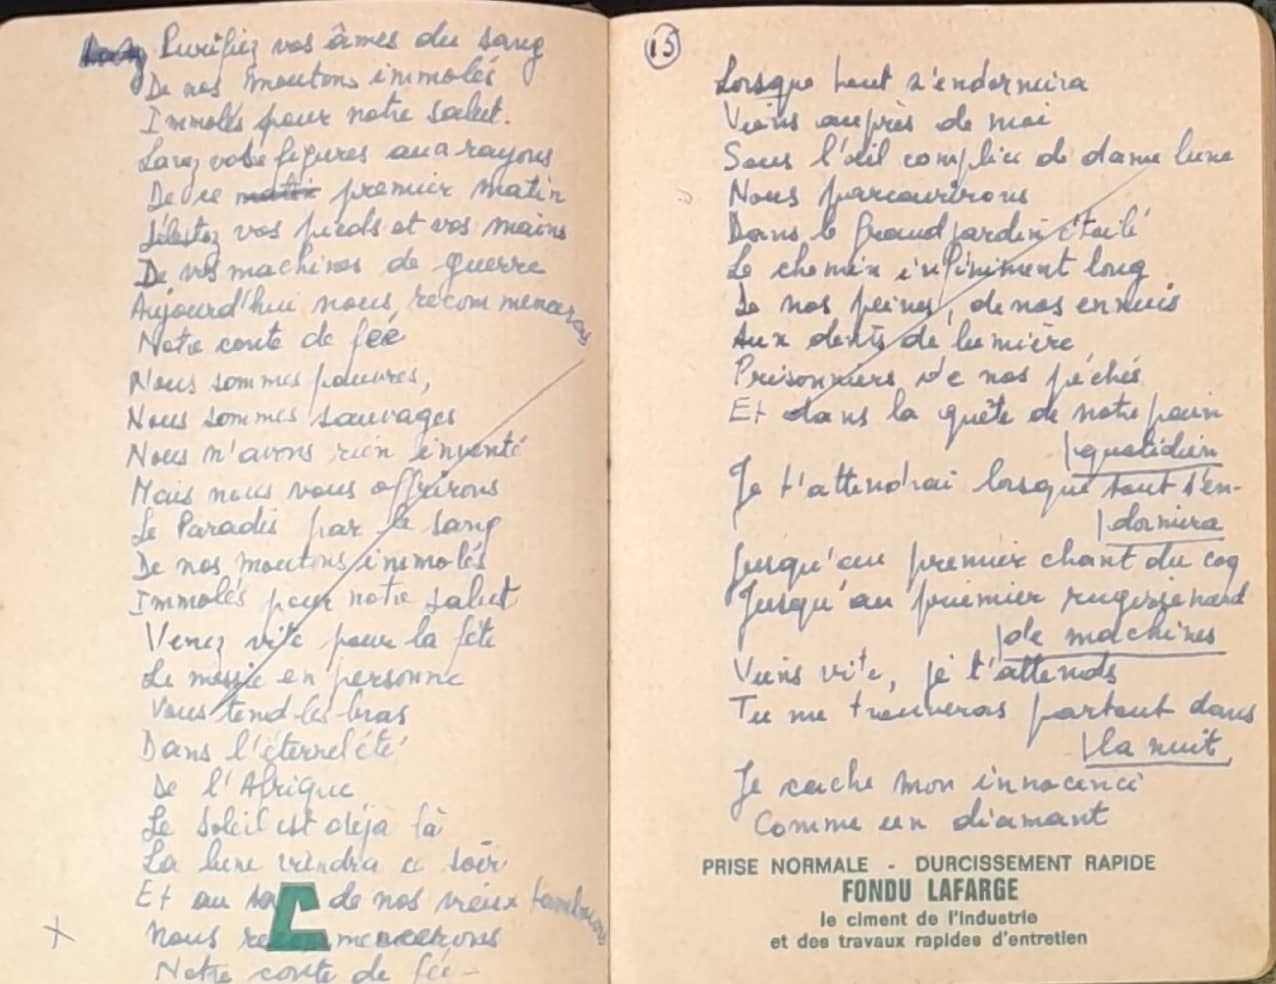 Purifiez vos âmes du sang
De nos moutons immolés
Immolés pour notre salut.
Lavez vos figures aux rayons
De ce matin premier matin
Délestez vos pieds et vos mains
De vos machines de guerre
Aujourd'hui nous recommencerons
Notre conte de fée
Nous sommes pauvres,
Nous sommes sauvages
Nous n'avons rien inventé
Mais nous vous offrirons
Le Paradis par le sang
De nos moutons immolés
Immolés pour notre salut
Venez vite pour la fête
Le messie en personne
Vous tend les bras
Dans l'éternel été
De l'Afrique
Le soleil est déjà là
La lune viendra ce soir
Et au son de nos vieux tambours
Nous recommencerons
Notre conte de fée -
x
C
15
Lorsque tout s'endormira
Viens auprès de moi
Sous l'œil complice de dame lune
Nous parcourirons
Dans le grand jardin étoilé
Le chemin infiniment long
De nos peines, de nos ennuis
Aux dents de lumière
Prisonniers de nos péchés
Et dans la quête de notre pain
quotidien
Je t'attendrai lorsque tout s'en-
dormira
Jusqu'au premier chant du coq
Jusqu'au premier rugissement
de machines
Viens vite, je t'attends
Tu me trouveras partout dans
la nuit
Je cache mon innocence
Comme un diamant
PRISE NORMALE - DURCISSEMENT RAPIDE
FONDU LAFARGE
le ciment de l'industrie
et des travaux rapides d'entretien